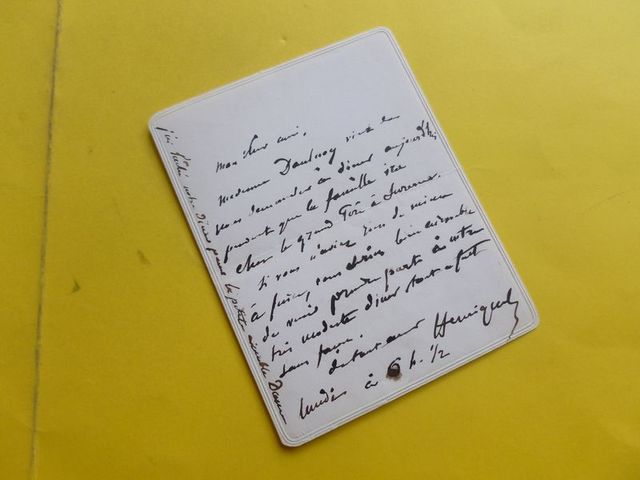 mon cher ami,
Madame Daubray vient de
vous demander à diner aujourd'hui
pendant que la famille ira
chez le grand à Suresnes.
Si vous n'aviez rien de mieux
à faire, vous bien aimable
de venir prendre part à notre
très modeste diner tout à fait
sans façon.
à Henriquel
lundi à 6 h. 1/2
j'ai votre pour la petite